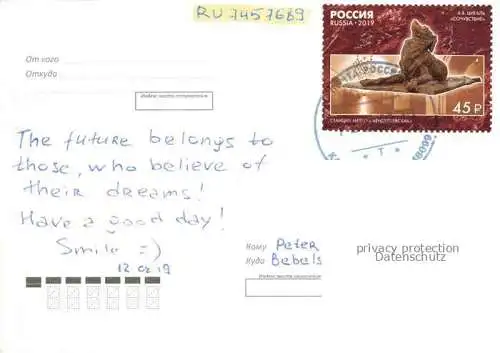 RU 7457689
РОССИЯ
RUSSIA · 2019
А.В. ЦИГАЛЬ
«СОЧУВСТВИЕ»
СТАНЦИЯ МЕТРО «МЕНДЕЛЕЕВСКАЯ»
45 Р
ПОЧТА РОССИИ
От кого
Откуда
Индекс места отправления
The future belongs to
those, who believe of
their dreams!
Have a good day!
Smile =)
Кому Peter
Куда Bebels
privacy protection
Datenschutz